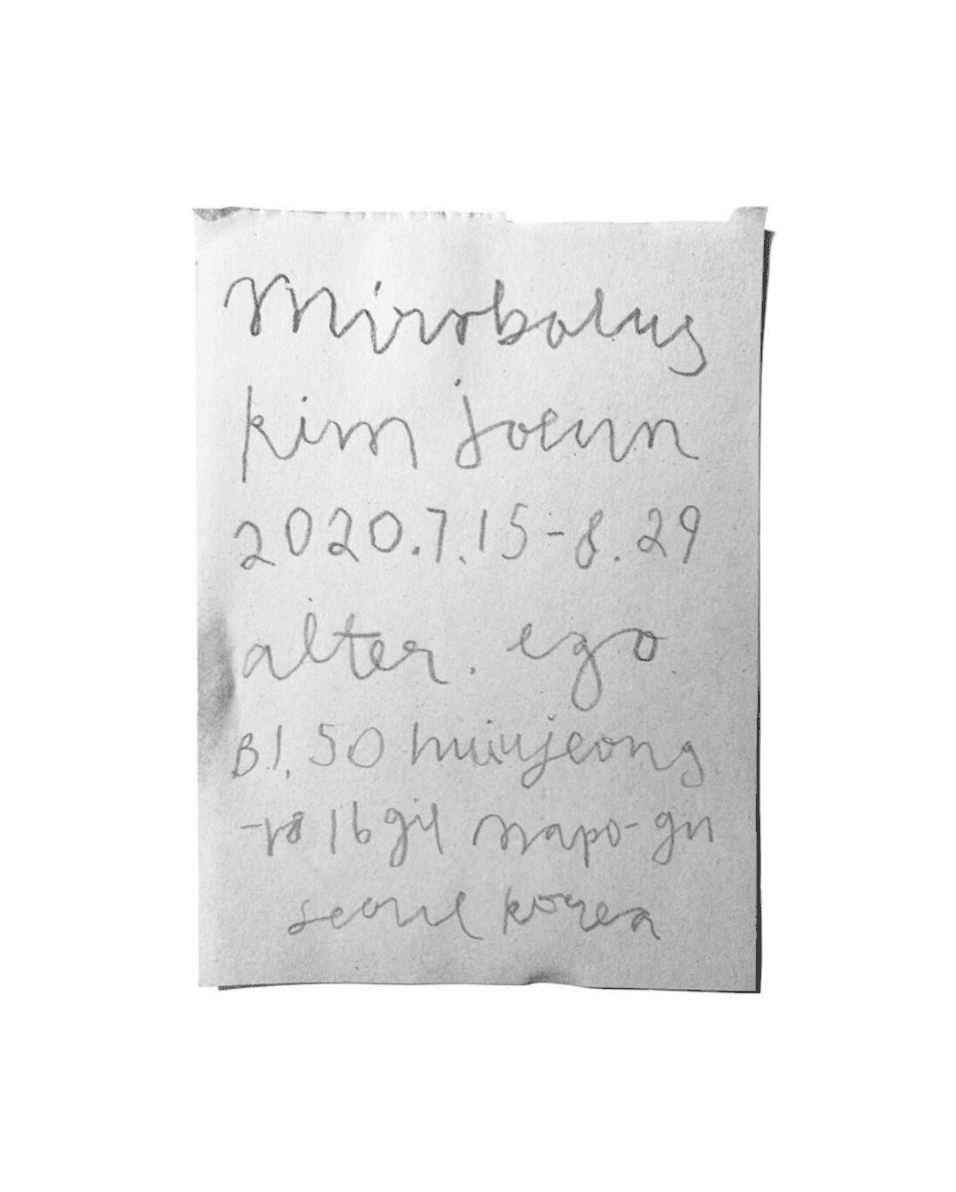 Mirobolus
kim joeun
2020.7.15-8.29
alter. ego
B1, 50 huiujeong
-ro 16gil mapo-gu
seoul korea